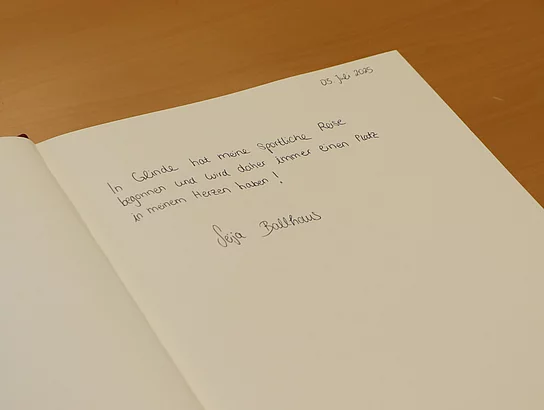 05. Juli 2025
In Glinde hat meine sportliche Reise
begonnen und wird daher immer einen Platz
in meinem Herzen haben!
Svea Balthaus